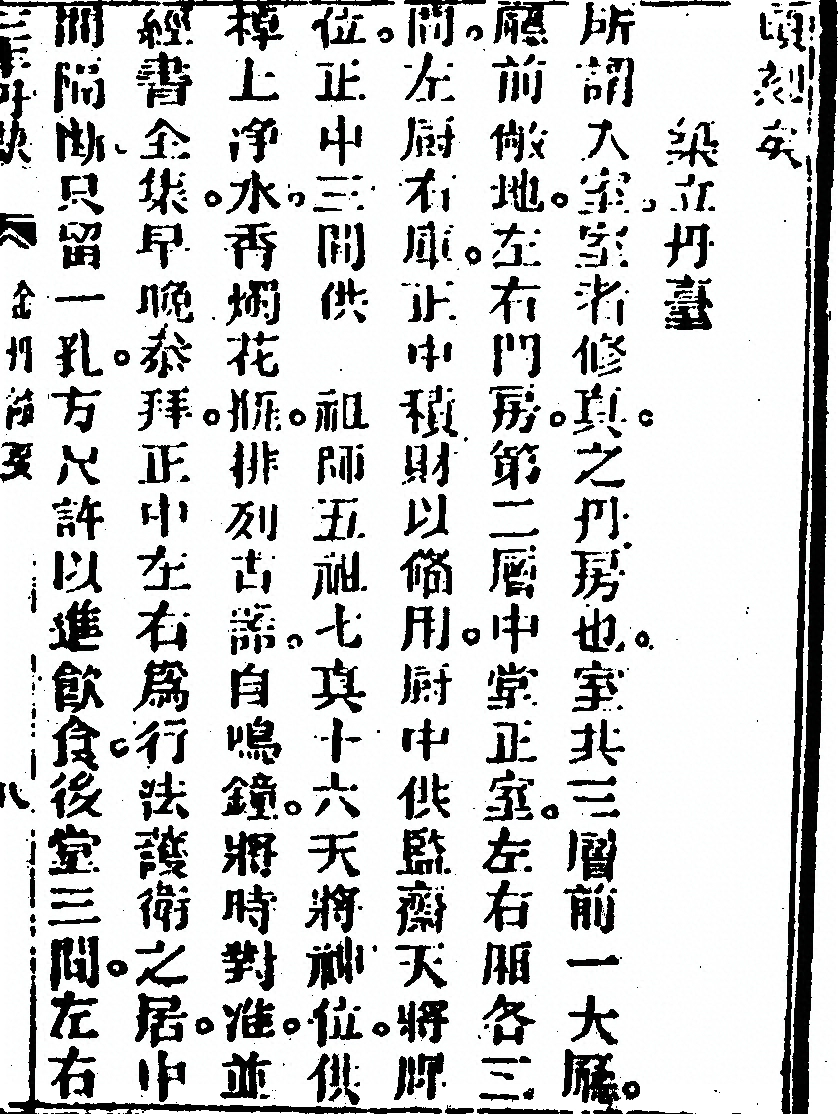 頃刻矣
築立丹臺
所謂入室。室者修真。之丹房也。室共三層前一大廳。
廳前敞地。左右門房。第二層中堂正室。左右厢各三
間。左厨右庫。正中積財以俻用。厨中供監齋天將牌
位。正中三間供 祖師五祖七真十六天將神位。供
棹上净水。香燭花瓶。排列古器。自鳴鐘。將時對准。並
經書全集。早晚叅拜。正中左右為行法護衛之居。中
間隔断、只留一孔。方尺許以進飲食。後堂三間。左右
金丹節要
八